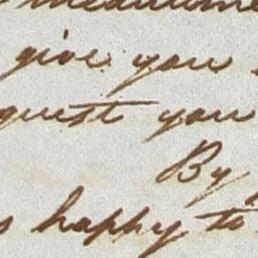 give you
quest you
By
happy to